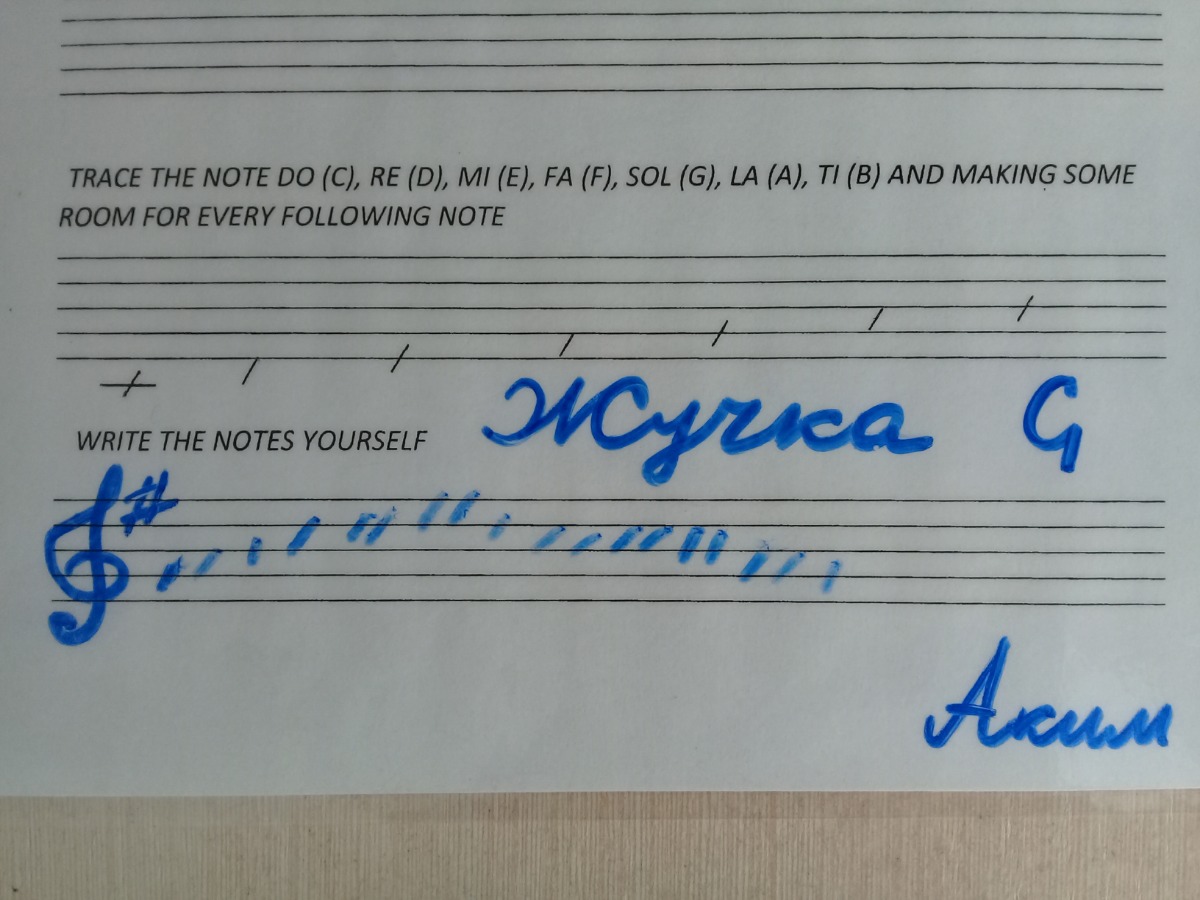 TRACE THE NOTE DO (C), RE (D), MI (E), FA (F), SOL (G), LA (A), TI (B) AND MAKING SOME
ROOM FOR EVERY FOLLOWING NOTE
WRITE THE NOTES YOURSELF Жучка G
Аким